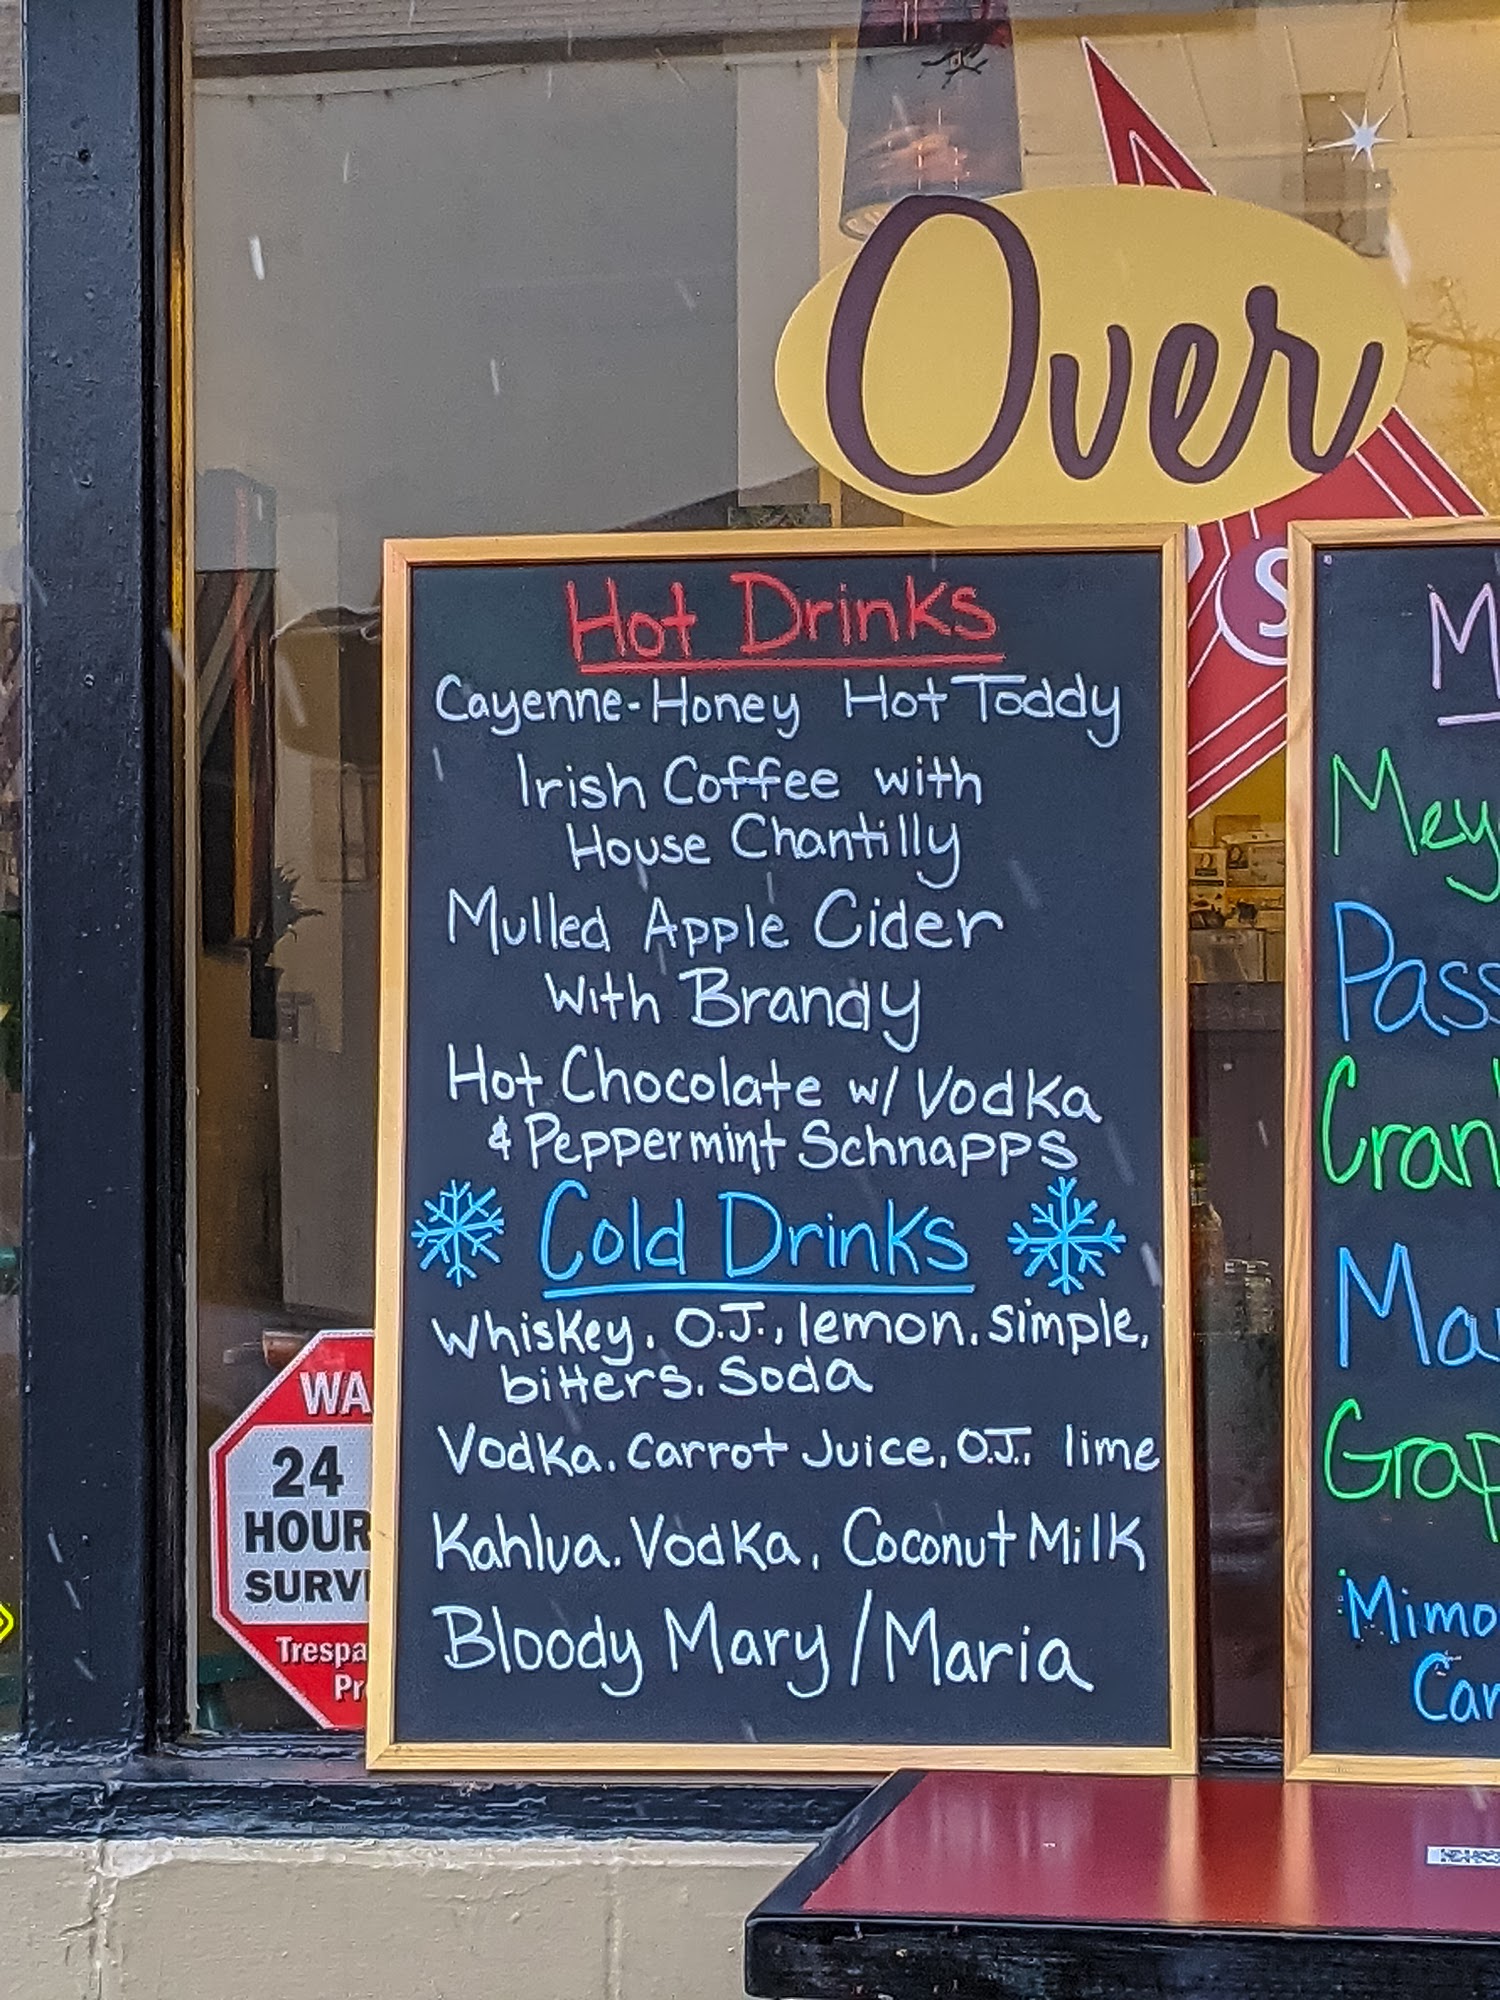 Over
S
Hot Drinks
Cayenne-Honey Hot Toddy
Irish Coffee with
House Chantilly
Mulled Apple Cider
With Brandy
Hot Chocolate w/ Vodka
& Peppermint Schnapps
Cold Drinks
Whiskey, O.J., lemon, simple,
bitters, soda
Vodka, Carrot Juice, O.J., lime
Kahlua, Vodka, Coconut Milk
Bloody Mary/Maria
M
Mey
Pass
Cran
Ma
Grap
Mimo
Car
WA
24
HOUR
SURVI
Trespa
Pr